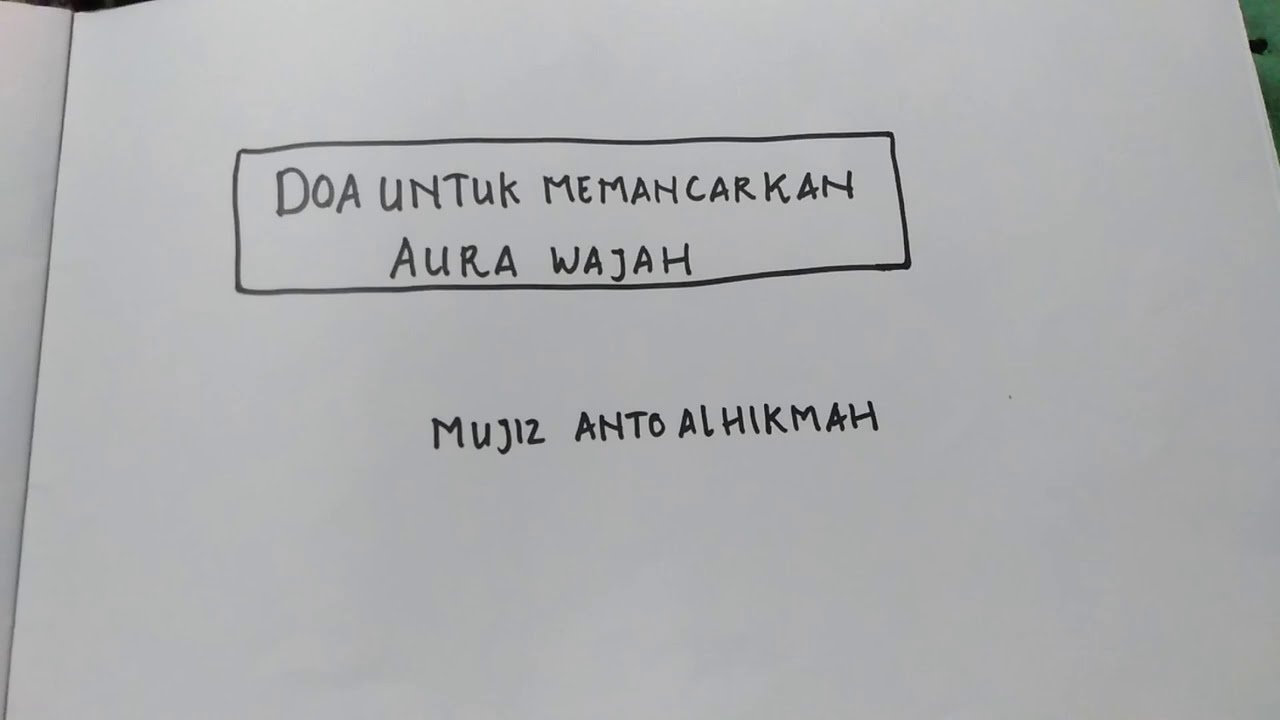 DOA UNTUK MEMANCARKAN
AURA WAJAH
MUJIZ ANTO AlHIKMAH